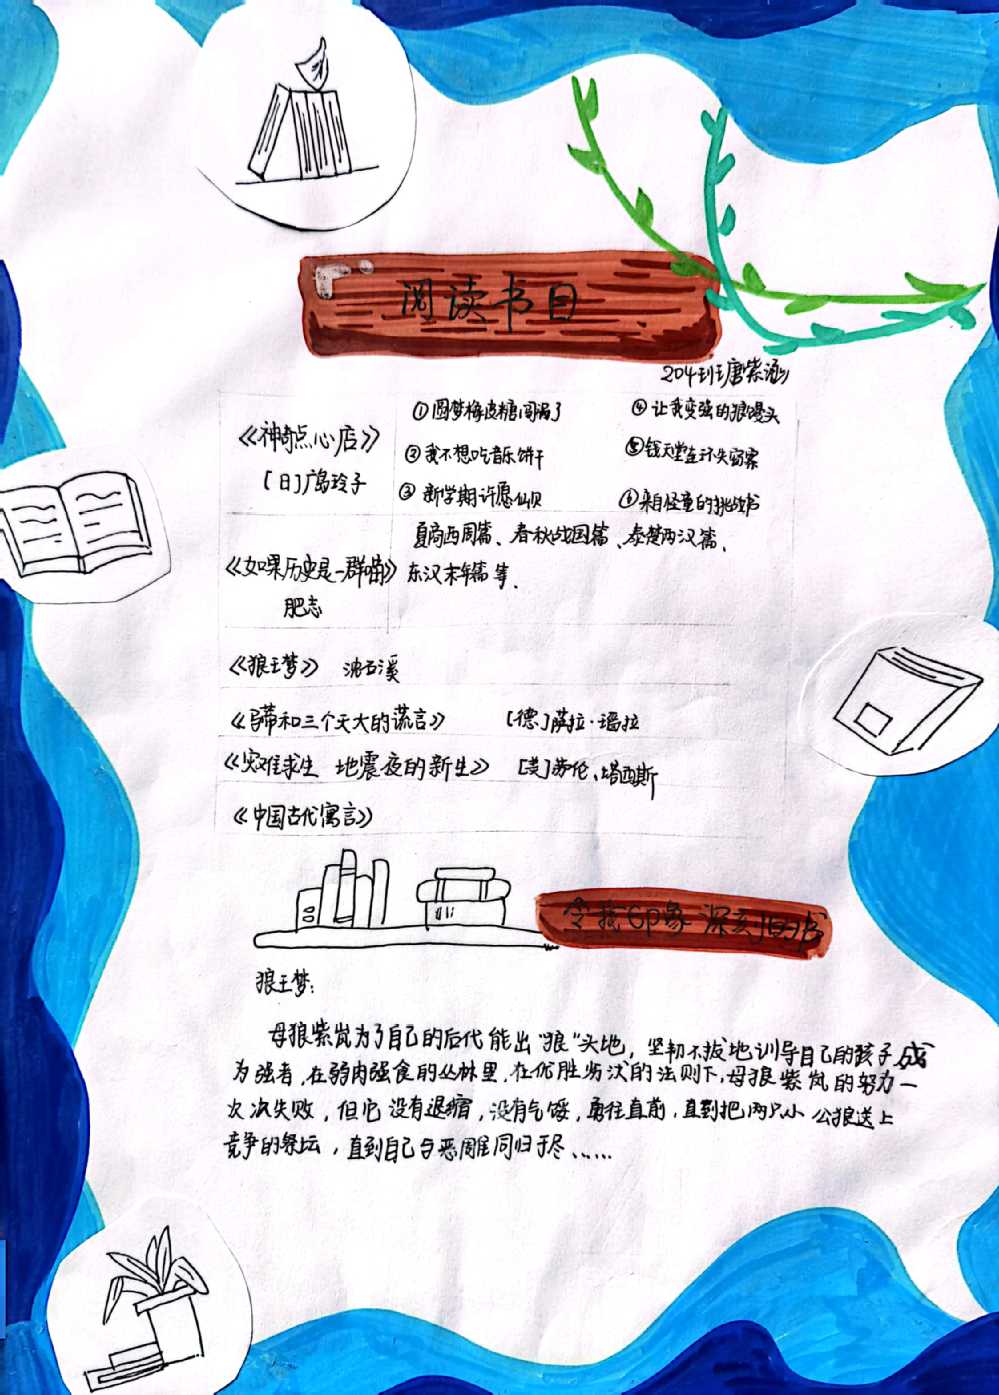 阅读书目
204班唐紫涵
《神奇点心店》
[日]广岛玲子
①圆梦橡皮糖闯祸了
④让我变强的狼馒头
②我不想吃音乐饼干
⑤钱天堂连环失窃案
③新学期许愿仙贝
⑥来自怪童的挑战书
《如果历史是一群喵》
肥志
夏商西周篇、春秋战国篇、秦楚两汉篇、
东汉末年篇等、
《狼王梦》 沈石溪
《吕蒂和三个天大的谎言》 [德]萨拉·瑙拉
《灾难求生 地震夜的新生》 [美]劳伦、塔西斯
《中国古代寓言》
令我印象深刻的书
狼王梦:
母狼紫岚为了自己的后代能出“狼”头地，坚韧不拔地训导自己的孩子成
为强者，在弱肉强食的丛林里，在优胜劣汰的法则下，母狼紫岚的努力一
次次失败，但它没有退缩，没有气馁，勇往直前，直到把两只小公狼送上
竞争的祭坛，直到自己与恶雕同归于尽……